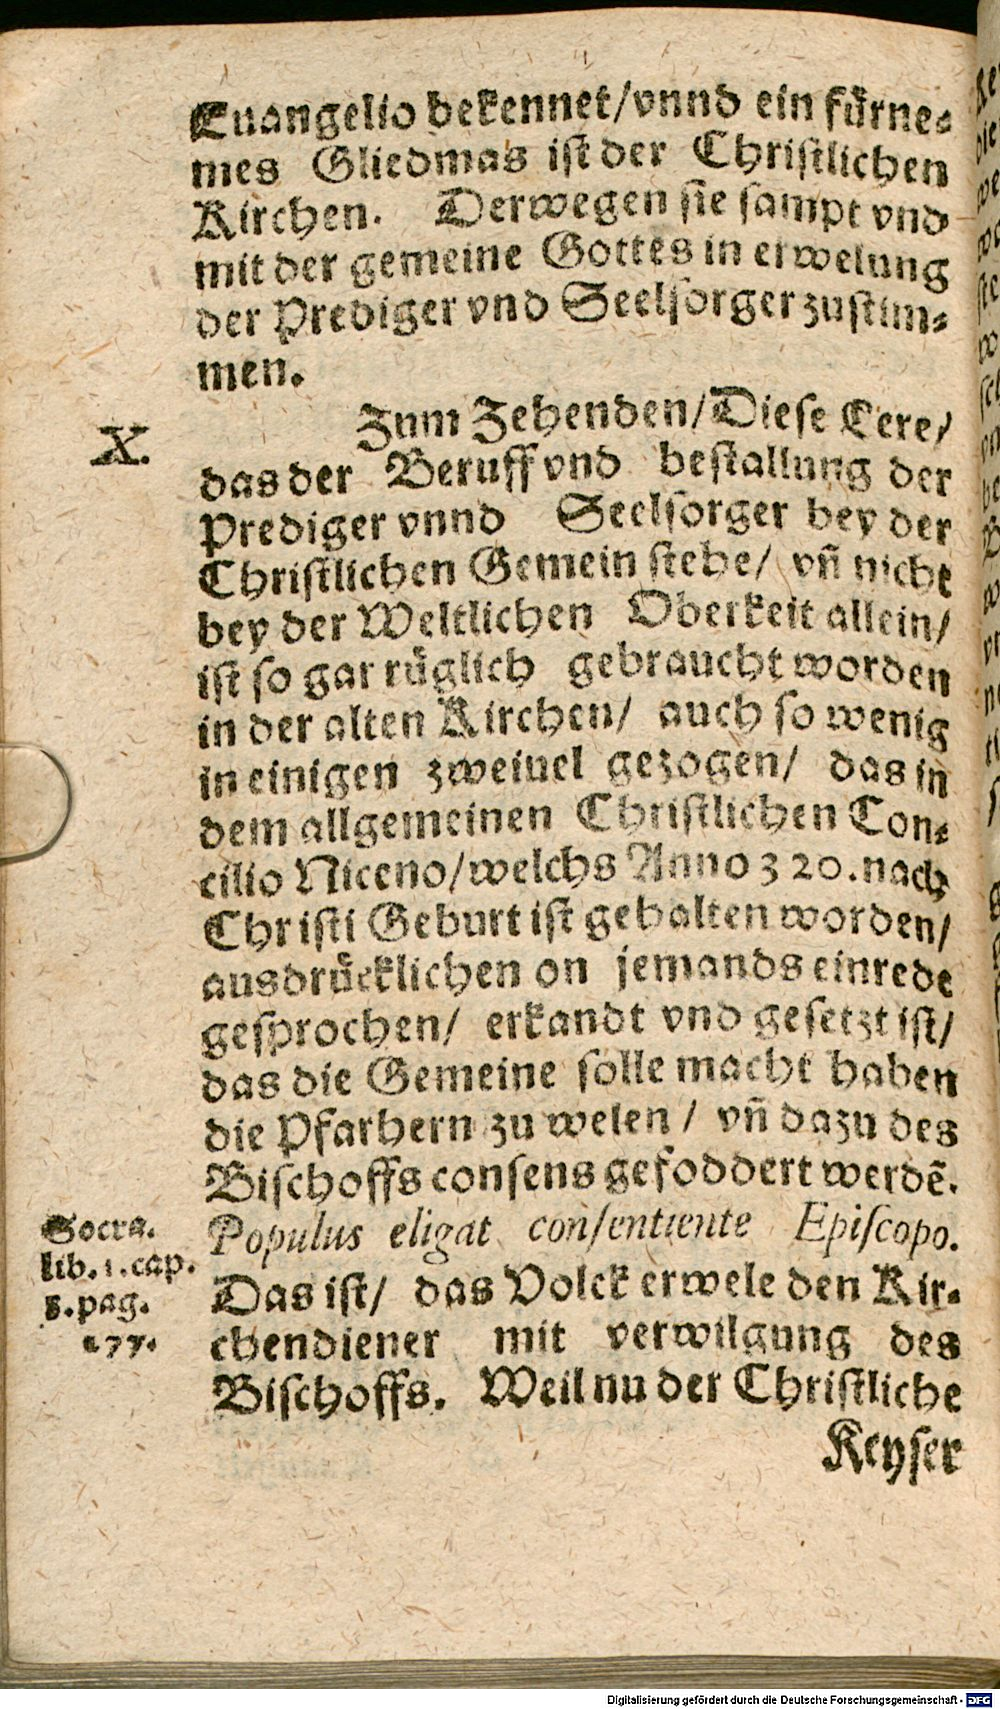 Euangelio bekennet/vnnd ein fürne-
mes Gliedmas ist der Christlichen
Kirchen. Derwegen sie sampt vnd
mit der gemeine Gottes in erwelung
der Prediger vnd Seelsorger zustim-
men.
X.
Zum Zehenden/Diese Lere/
das der Beruff vnd bestallung der
Prediger vnnd Seelsorger bey der
Christlichen Gemein stehe/ vñ nicht
bey der Weltlichen Oberkeit allein/
ist so gar rüglich gebraucht worden
in der alten Kirchen/ auch so wenig
in einigen zweiuel gezogen/ das in
dem allgemeinen Christlichen Con-
cilio Niceno/welchs Anno 320. nach
Christi Geburt ist gehalten worden/
ausdrücklichen on jemands einrede
gesprochen/ erkandt vnd gesetzt ist/
das die Gemeine solle macht haben
die Pfarhern zu welen / vñ dazu des
Bischoffs consens gefoddert werdẽ.
Socra.
lib. 1. cap.
pag.
277.
Populus eligat consentiente Episcopo.
Das ist/ das Volck erwele den Kir-
chendiener mit verwilgung des
Bischoffs. Weil nu der Christliche
Keyser
Digitalisierung gefördert durch die Deutsche Forschungsgemeinschaft - DFG